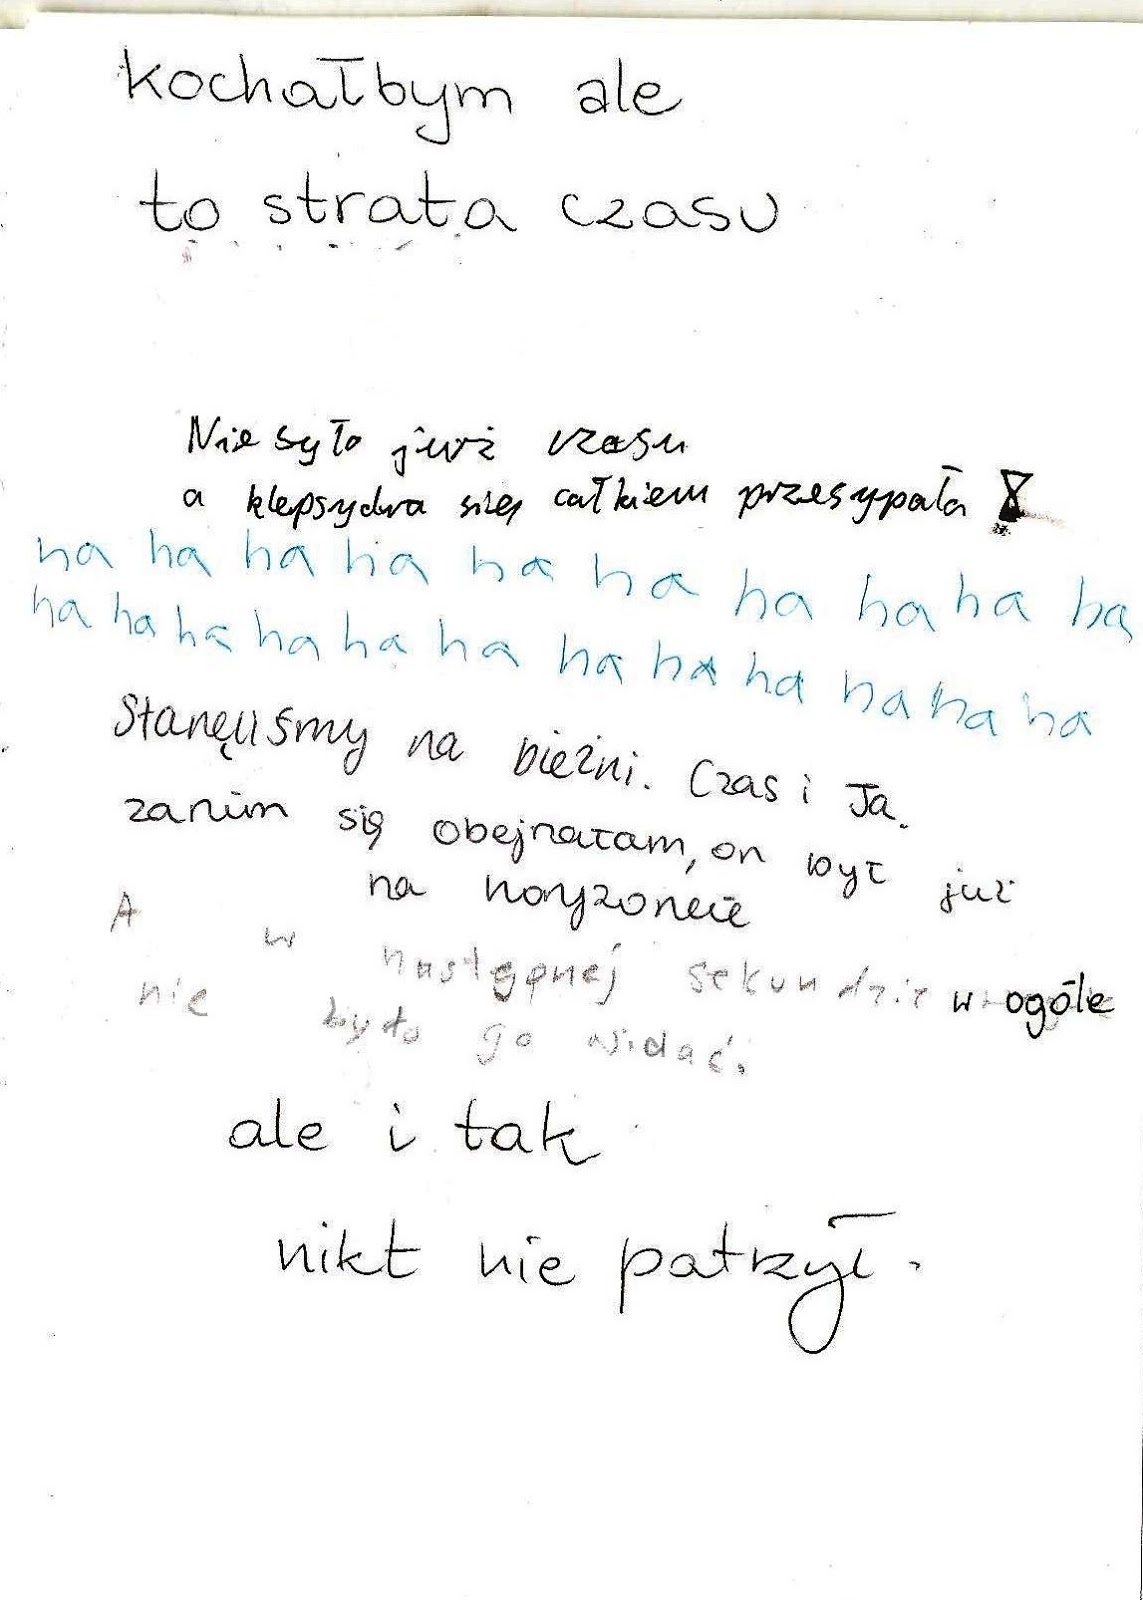 kochałbym ale
to strata czasu
Nie było już czasu
a klepsydra się całkiem przesypała
ha ha ha ha ha ha ha ha ha ha
ha ha ha ha ha ha ha ha ha ha ha ha
Stanęliśmy na bieżni. Czas i Ja.
zanim się obejrzałam, on był już
na horyzoncie
A w następnej sekundzie w ogóle
nie było go widać.
ale i tak
nikt nie patrzył.